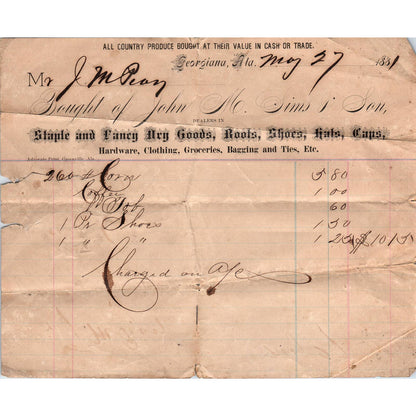 ALL COUNTRY PRODUCE BOUGHT AT THEIR VALUE IN CASH OR TRADE.
Georgiana, Ala. May 27 1881
Mr J M Peavy
Bought of John M. Sims & Son,
DEALERS IN
Staple and Fancy Dry Goods, Boots, Shoes, Hats, Caps,
Hardware, Clothing, Groceries, Bagging and Ties, Etc.
Advocate Print, Greenville, Ala.
260 # Corn 5 80
Coffee 1 00
Tob 60
1 Pr Shoes 1 50
1 " " 1 25 $10 15
Charged on a/c